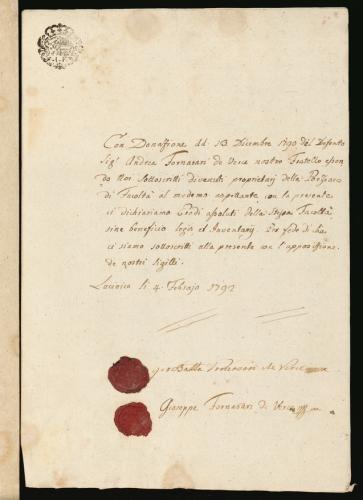 Con Donazione dd. 13 Dicembre 1790 del Defonto
Sig.r Andrea Fornasari de Verce nostro Fratello essen
do Noi Sottoscritti divenuti proprietarj della
di Facoltà al medemo aspettante, con la presente
ci dichiariamo Eredi assoluti della stessa Facoltà,
sine beneficio legis et Inventarij. In fede di che
ci siamo sottoscritti alla presente con l'apposizione
de nostri Sigilli.
li 4 Febrajo 1792
Batta Fornasari de Verce
Giuseppe Fornasari de Verce